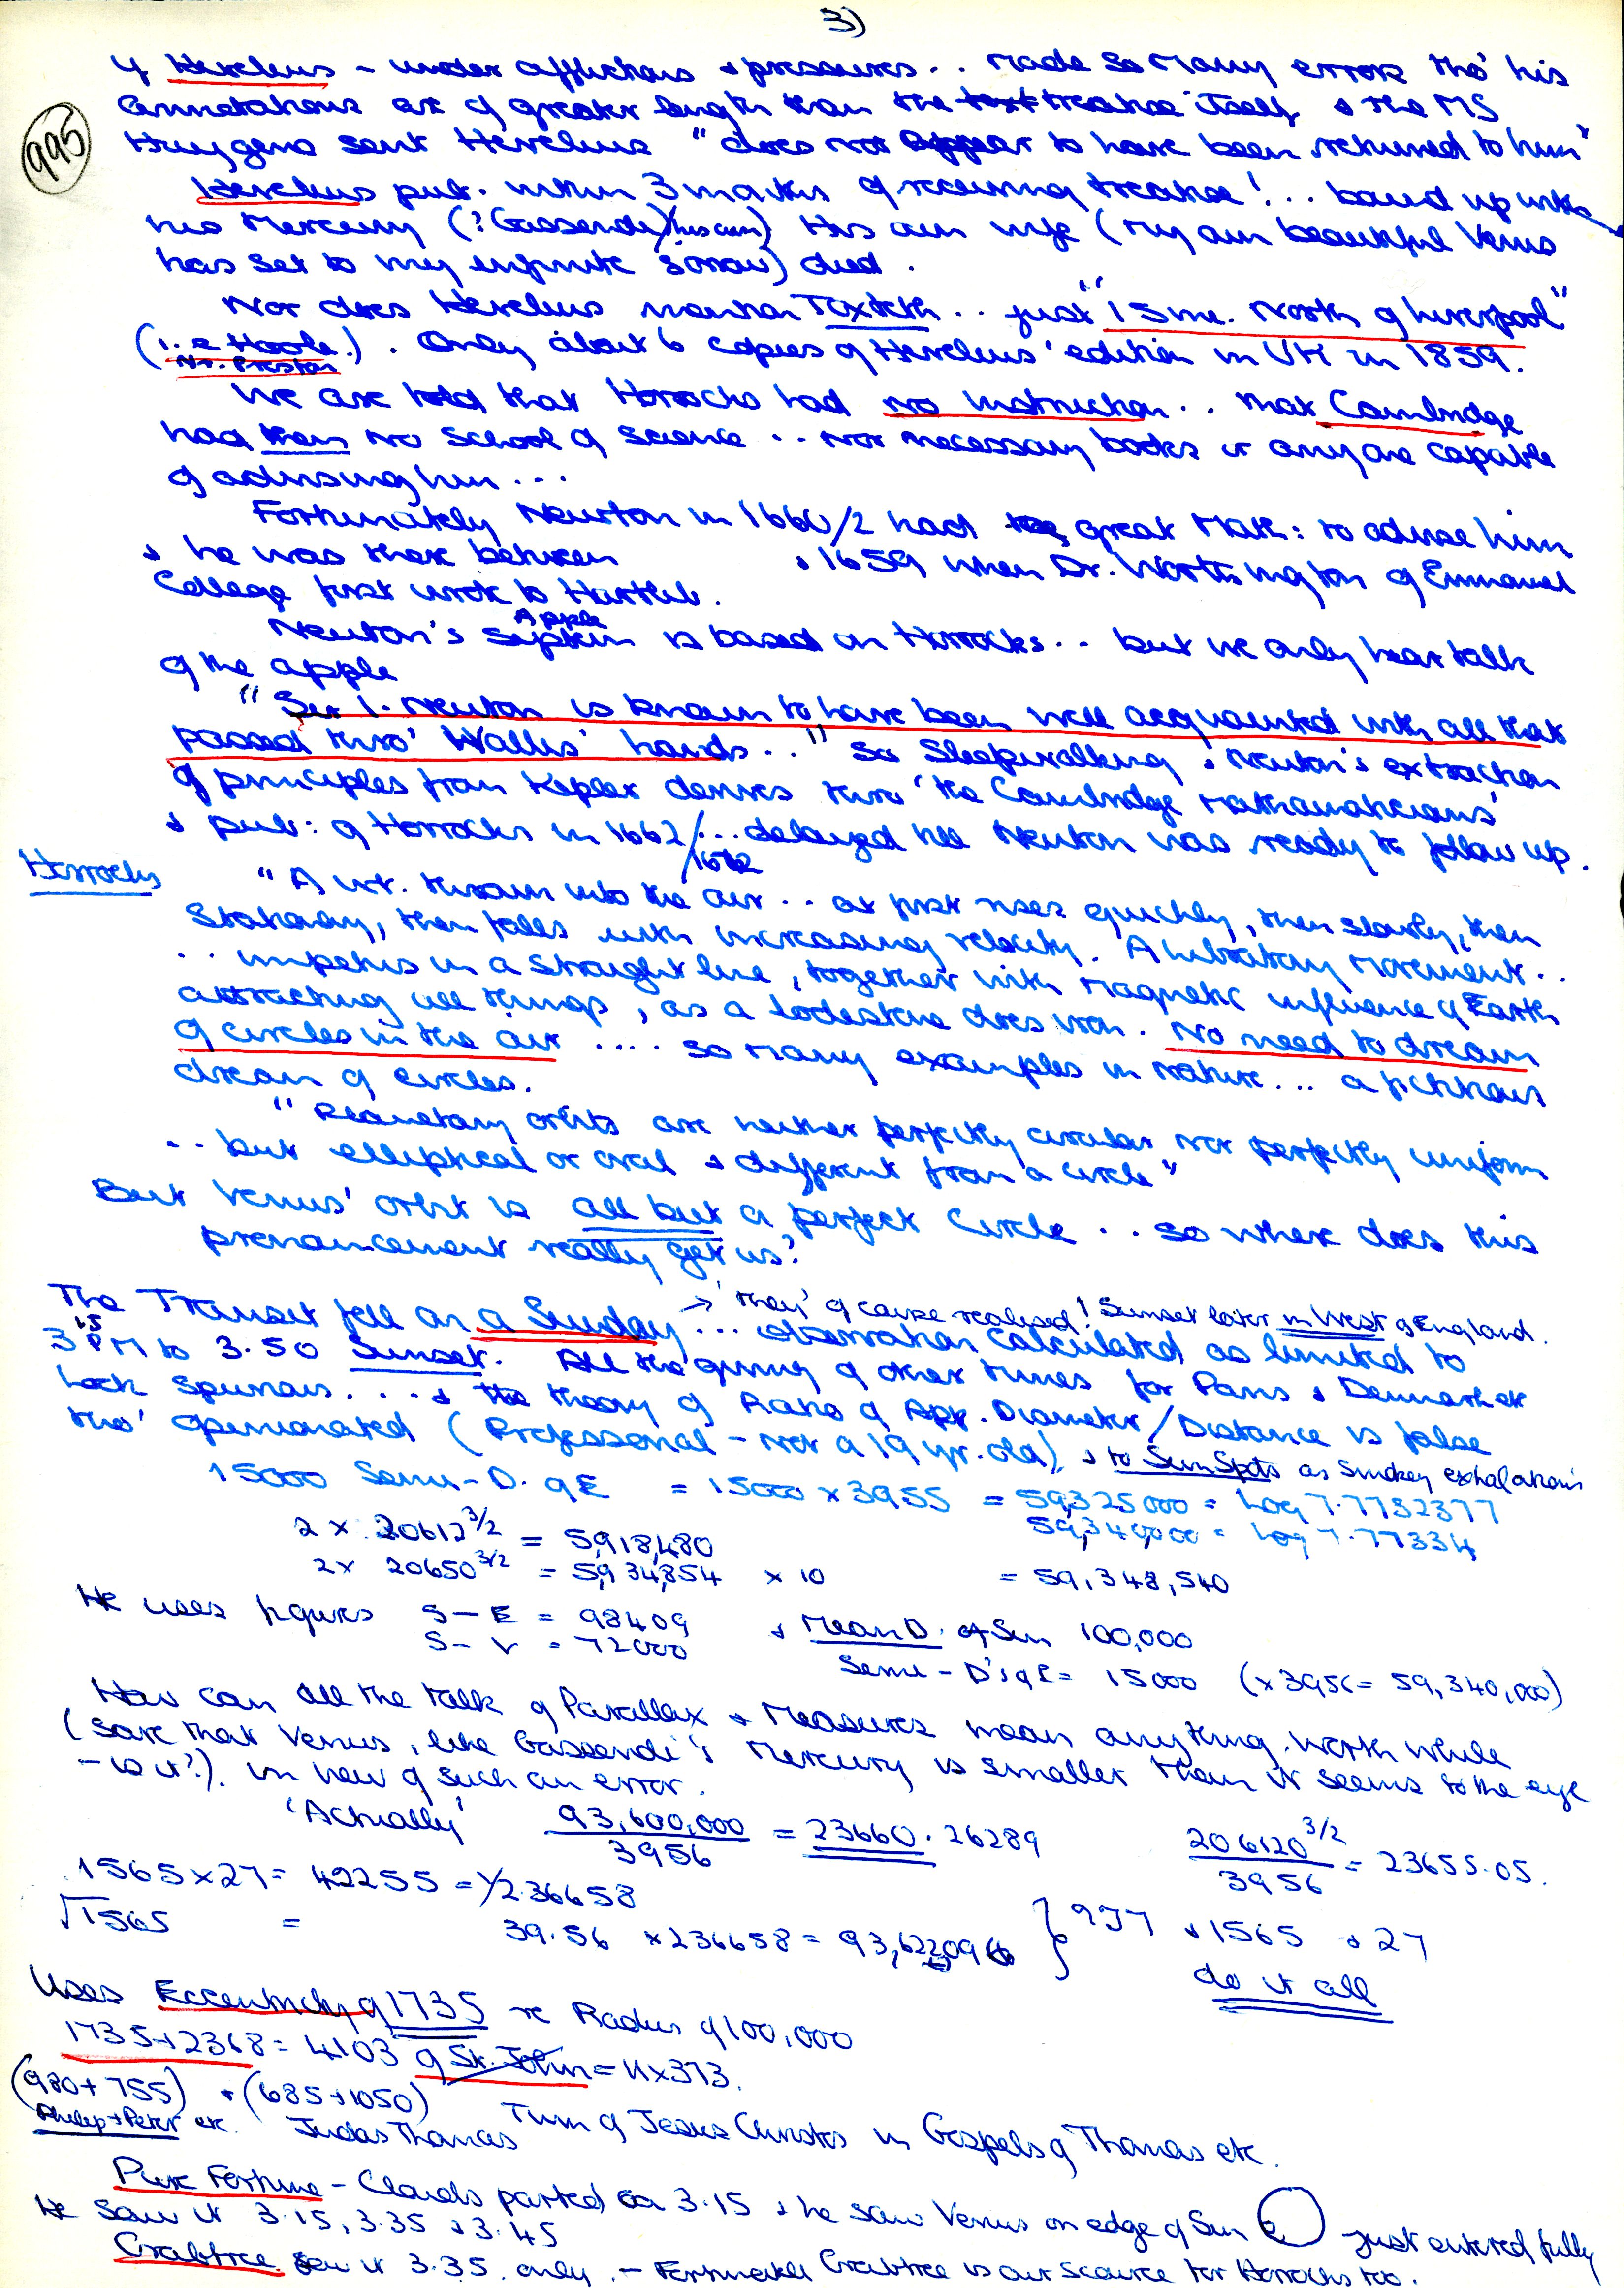 3)
995
4 Hevelius - under afflictions & pressures .. Made so Many errors tho' his
annotations are of greater length than the text treatise itself & the MS
Huygens sent Hevelius "does not appear to have been returned to him"
Hevelius pub. within 3 months of receiving treatise! .. bound up with
his Mercury (? Gassendi/his own) His own wife (My own beautiful Venus
has set to my infinite sorrow) died.
Nor does Hevelius mention Toxteth .. just "15 me. North of Liverpool"
(i.e Hoole.). Only about 6 copies of Hevelius' edition in UK in 1859.
Nr. Preston
We are told that Horrocks had no instruction .. that Cambridge
had then no School of Science .. nor necessary books or anyone capable
of advising him ...
Fortunately Newton in 1660/2 had the great Math: to advise him
& he was there between & 1659 when Dr. Worthington of Emmanuel
College first wrote to Hartlib.
Apple
Newton's is based on Horrocks .. but we only hear talk
of the apple
"Sir I. Newton is known to have been well acquainted with all that
passed thro' Wallis' hands .." So Sleepwalking & Newton's extraction
of principles from Kepler derives thro 'the Cambridge Mathematicians'
& pub: of Horrocks in 1662/... delayed till Newton was ready to follow up.
/1672
Horrocks
"A wt. thrown into the air .. at first rises quickly, then slowly, then
Stationary, then falls with increasing velocity. A libratory movement ..
.. impetus in a straight line, together with Magnetic influence of Earth
attracting all things, as a lodestone does iron. No need to dream
of circles in the air .... so many examples in nature ... a fictitious
dream of circles.
"Planetary orbits are neither perfectly circular nor perfectly uniform
.. but elliptical or oval & different from a circle"
But Venus' orbit is all but a perfect Circle .. so where does this
pronouncement really get us?
→ 'they' of course realised! Sunset later in West of England.
The Transit fell on a Sunday ... observation Calculated as limited to
3.15 PM to 3.50 Sunset. All the giving of other times for Paris & Denmark etc
look spurious ... & the theory of Ratio of App. Diameter/Distance is false
tho' opinionated (Professional - not a 19 yr. old) & to Sun Spots as smokey exhalations
15000 Semi-D. of E = 15000 x 3955 = 59,325000 = Log 7.7732377
59,340,000 = Log 7.77334
2 x 20612 3/2 = 5,918,480
2 x 20650 3/2 = 5,934,854 x 10 = 59,348,540
He uses figures S-E = 98409 & Mean D. of Sun 100,000
S-V = 72000 Semi-D's of E = 15000 (x 3956 = 59,340,000)
How can all the talk of Parallax & Measures mean anything worth while
(save that Venus, like Gassendi's Mercury is smaller than it seems to the eye
- is it?). in view of such an error.
'Actually' 93,600,000/3956 = 23660.26289 206120 3/2/3956 = 23655.05.
1565 x 27 = 42255 = 1/236658
√1565 = 39.56 x 236658 = 93,622096 } 977 & 1565 & 27
do it all
Uses Eccentricity of 1735 re Radius of 100,000
1735 + 2368 = 4103 of St. John = 11 x 373.
(980 + 755) & (685 + 1050) Twin of Jesus Christos in Gospels of Thomas etc.
Philip + Peter etc. Judas Thomas
Pure Fortune - Clouds parted on 3.15 & he saw Venus on edge of Sun just entered fully
He saw it 3.15, 3.35 & 3.45
Crabtree saw it 3.35 only. - Fortunately Crabtree is our source for Horrocks too.